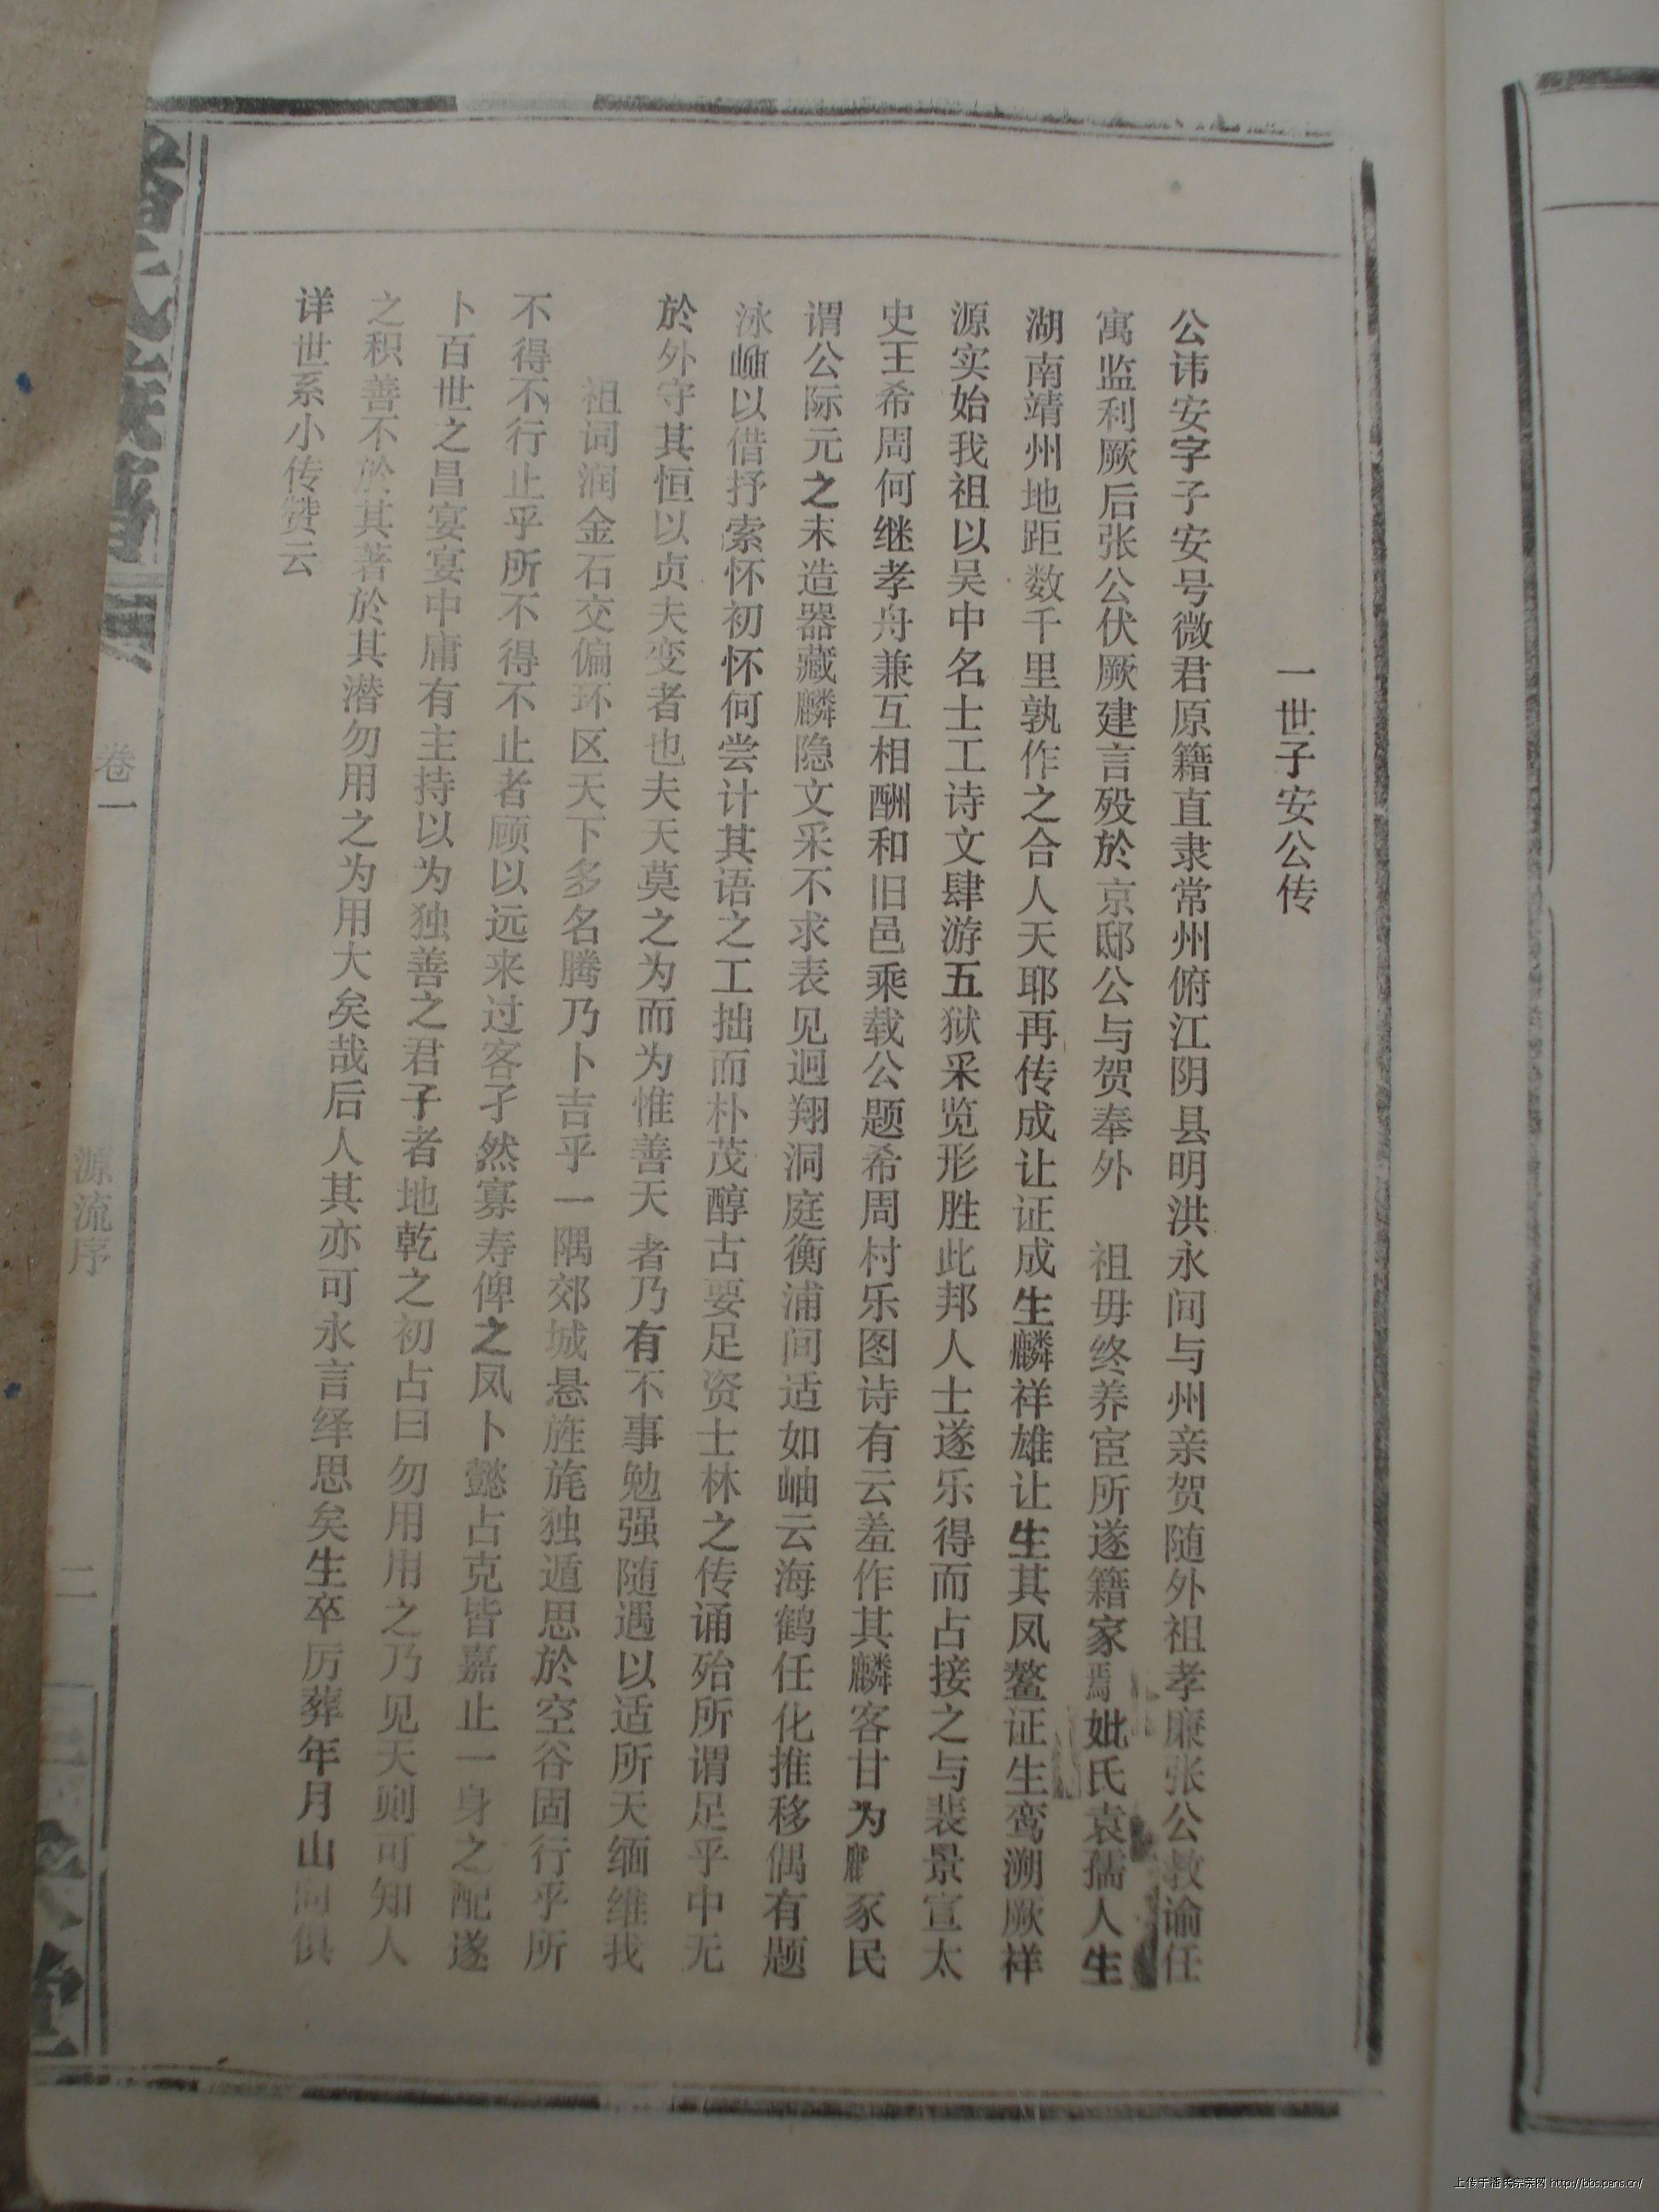 一世子安公传
公讳安字子安号微君原籍直隶常州俯江阴县明洪永间与州亲贺随外祖孝廉张公教谕任
寓监利厥后张公伏厥建言殁於京邸公与贺奉外 祖毋终养宦所遂籍家焉妣氏袁孺人生
湖南靖州地距数千里孰作之合人天耶再传成让证成生麟祥雄让生其凤鳌证生鸾溯厥祥
源实始我祖以吴中名士工诗文肆游五狱采览形胜此邦人士遂乐得而占接之与裴景宣太
史王希周何继孝舟兼互相酬和旧邑乘载公题希周村乐图诗有云羞作其麟客甘为 豕民
谓公际元之末造器藏麟隐文采不求表见迥翔洞庭衡浦间适如岫云海鹤任化推移偶有题
泳 以借抒索怀初怀何尝计其语之工拙而朴茂醇古要足资士林之传诵殆所谓足乎中无
於外守其恒以贞夫变者也夫天莫之为而为惟善天者乃有不事勉强随遇以适所天缅维我
祖词润金石交偏环区天下多名腾乃卜吉乎一隅郊城悬旌旄独遁思於空谷固行乎所
不得不行止乎所不得不止者顾以远来过客孑然寡寿俾之凤卜懿占克皆嘉止一身之配遂
卜百世之昌宴宴中庸有主持以为独善之君子者地乾之初占曰勿用用之乃见天则可知人
之积善不於其著於其潜勿用之为用大矣哉后人其亦可永言绎思矣生卒厉葬年月山向俱
详世系小传赞云
潘氏族谱
卷一
源流序
二
堂
上传于潘氏宗亲网 http://bbs.pans.cn/